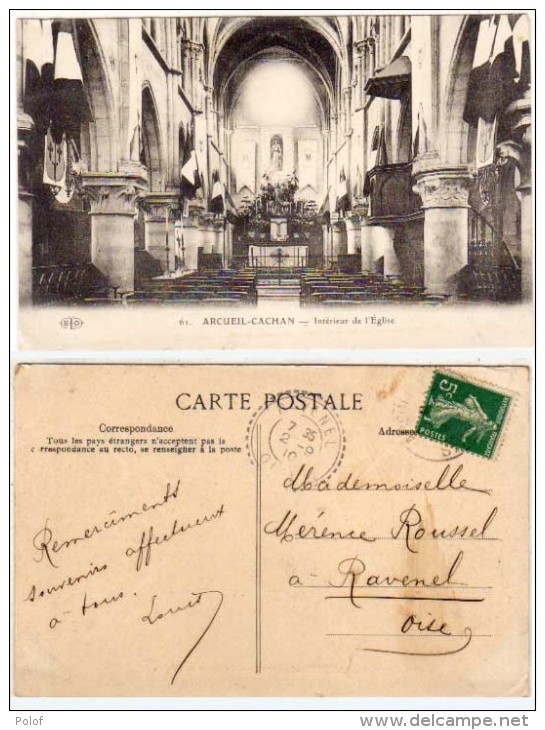 61. ARCUEIL-CACHAN — Intérieur de l'Église
ELD
CARTE POSTALE
Correspondance
Tous les pays étrangers n'acceptent pas la
correspondance au recto, se renseigner à la poste
Adresse
5c
POSTES
Remerciments
souvenirs affectueux
à tous.
Louis
Mademoiselle
Mérence Roussel
à Ravenel
Oise
Polof
www.delcampe.net